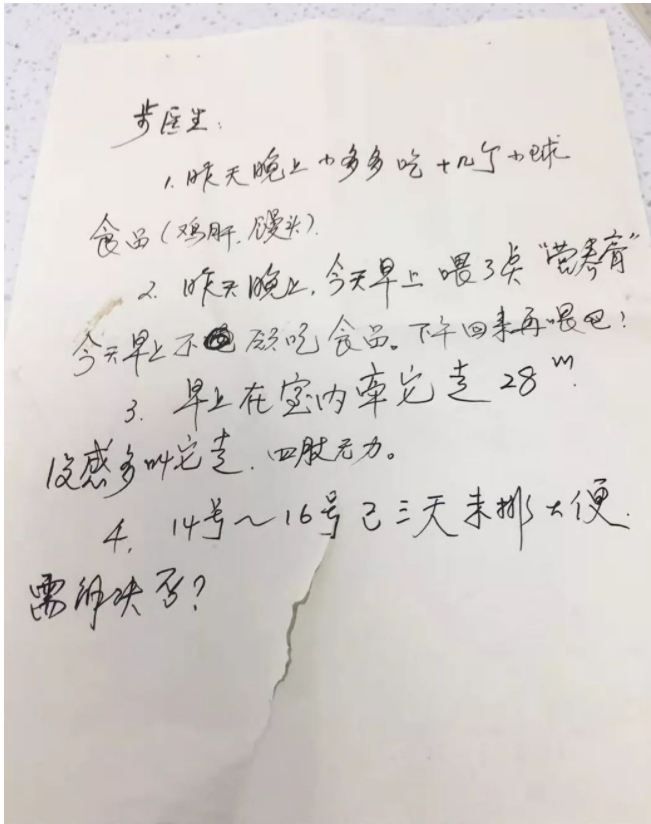 步医生:
1. 昨天晚上小多多吃十几个小球
食品(鸡肝、馒头).
2. 昨天晚上,今天早上喂了点“营养膏”
今天早上不愿吃食品。下午回来再喂吧!
3. 早上在室内牵它走28m.
没感多叫它走.四肢无力。
4. 14号~16号已三天未排大便.
需解决否?